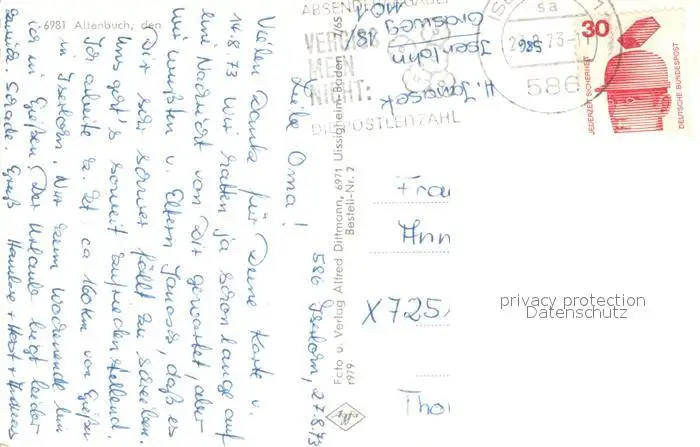 6981 Altenbuch, den
586 Iserlohn, 27.8.73
Liebe Oma!
Vielen Danke für Deine Karte v.
14.8.73 Wir hatten ja schon lange auf
eine Nachricht von Dir gewartet, aber
wir wußten v. Eltern Janosek, daß es
Dir sehr schwer fällt zu schreiben.
Uns geht's soweit zufriedenstellend.
Ich arbeite z. Zt ca 160 km von Gießen
in Iserlohn. Nur zum Wochenende bin
ich in Gießen. Der Urlaub liegt leider
zurück. Schade. Gruß
Foto u. Verlag Alfred Dittmann, 6971 Uissigheim-Baden
Bestell-Nr. 2
f979
ABSENDER
VERGISS
MEIN
NICHT:
DIE POSTLEITZAHL
H. Janosek
Iserlohn
Grasweg
586
30
JEDERZEIT SICHERHEIT
DEUTSCHE BUNDESPOST
Frau
X725
privacy protection
Datenschutz